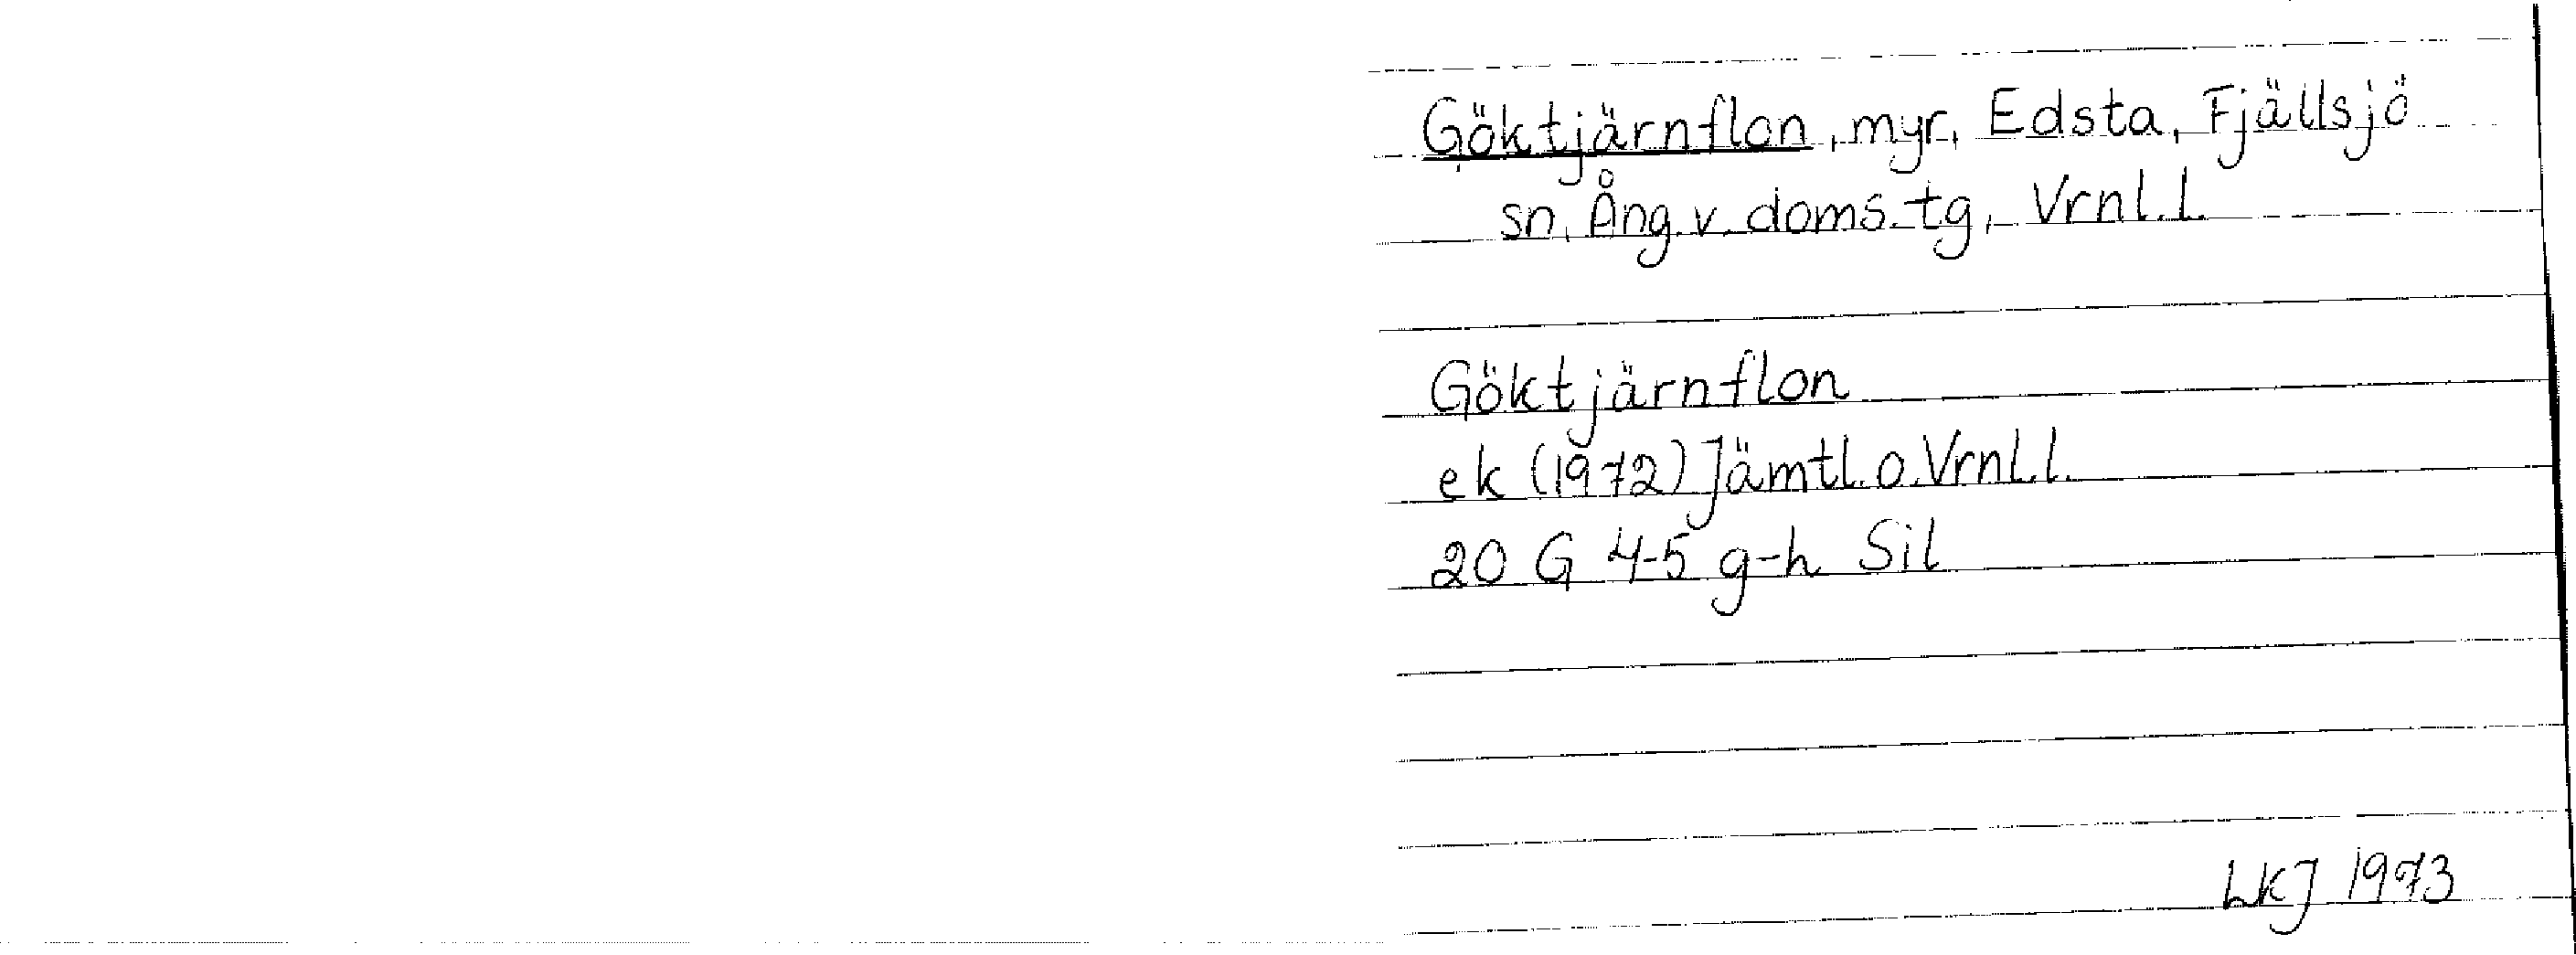 Göktjärnflon, myr, Edsta, Fjällsjö
sn, Ång. v. doms.tg, Vrnl.l.
Göktjärnflon
ek (1972) Jämtl. o. Vrnl.l.
20 G 4-5 g-h Sil
LKJ 1973